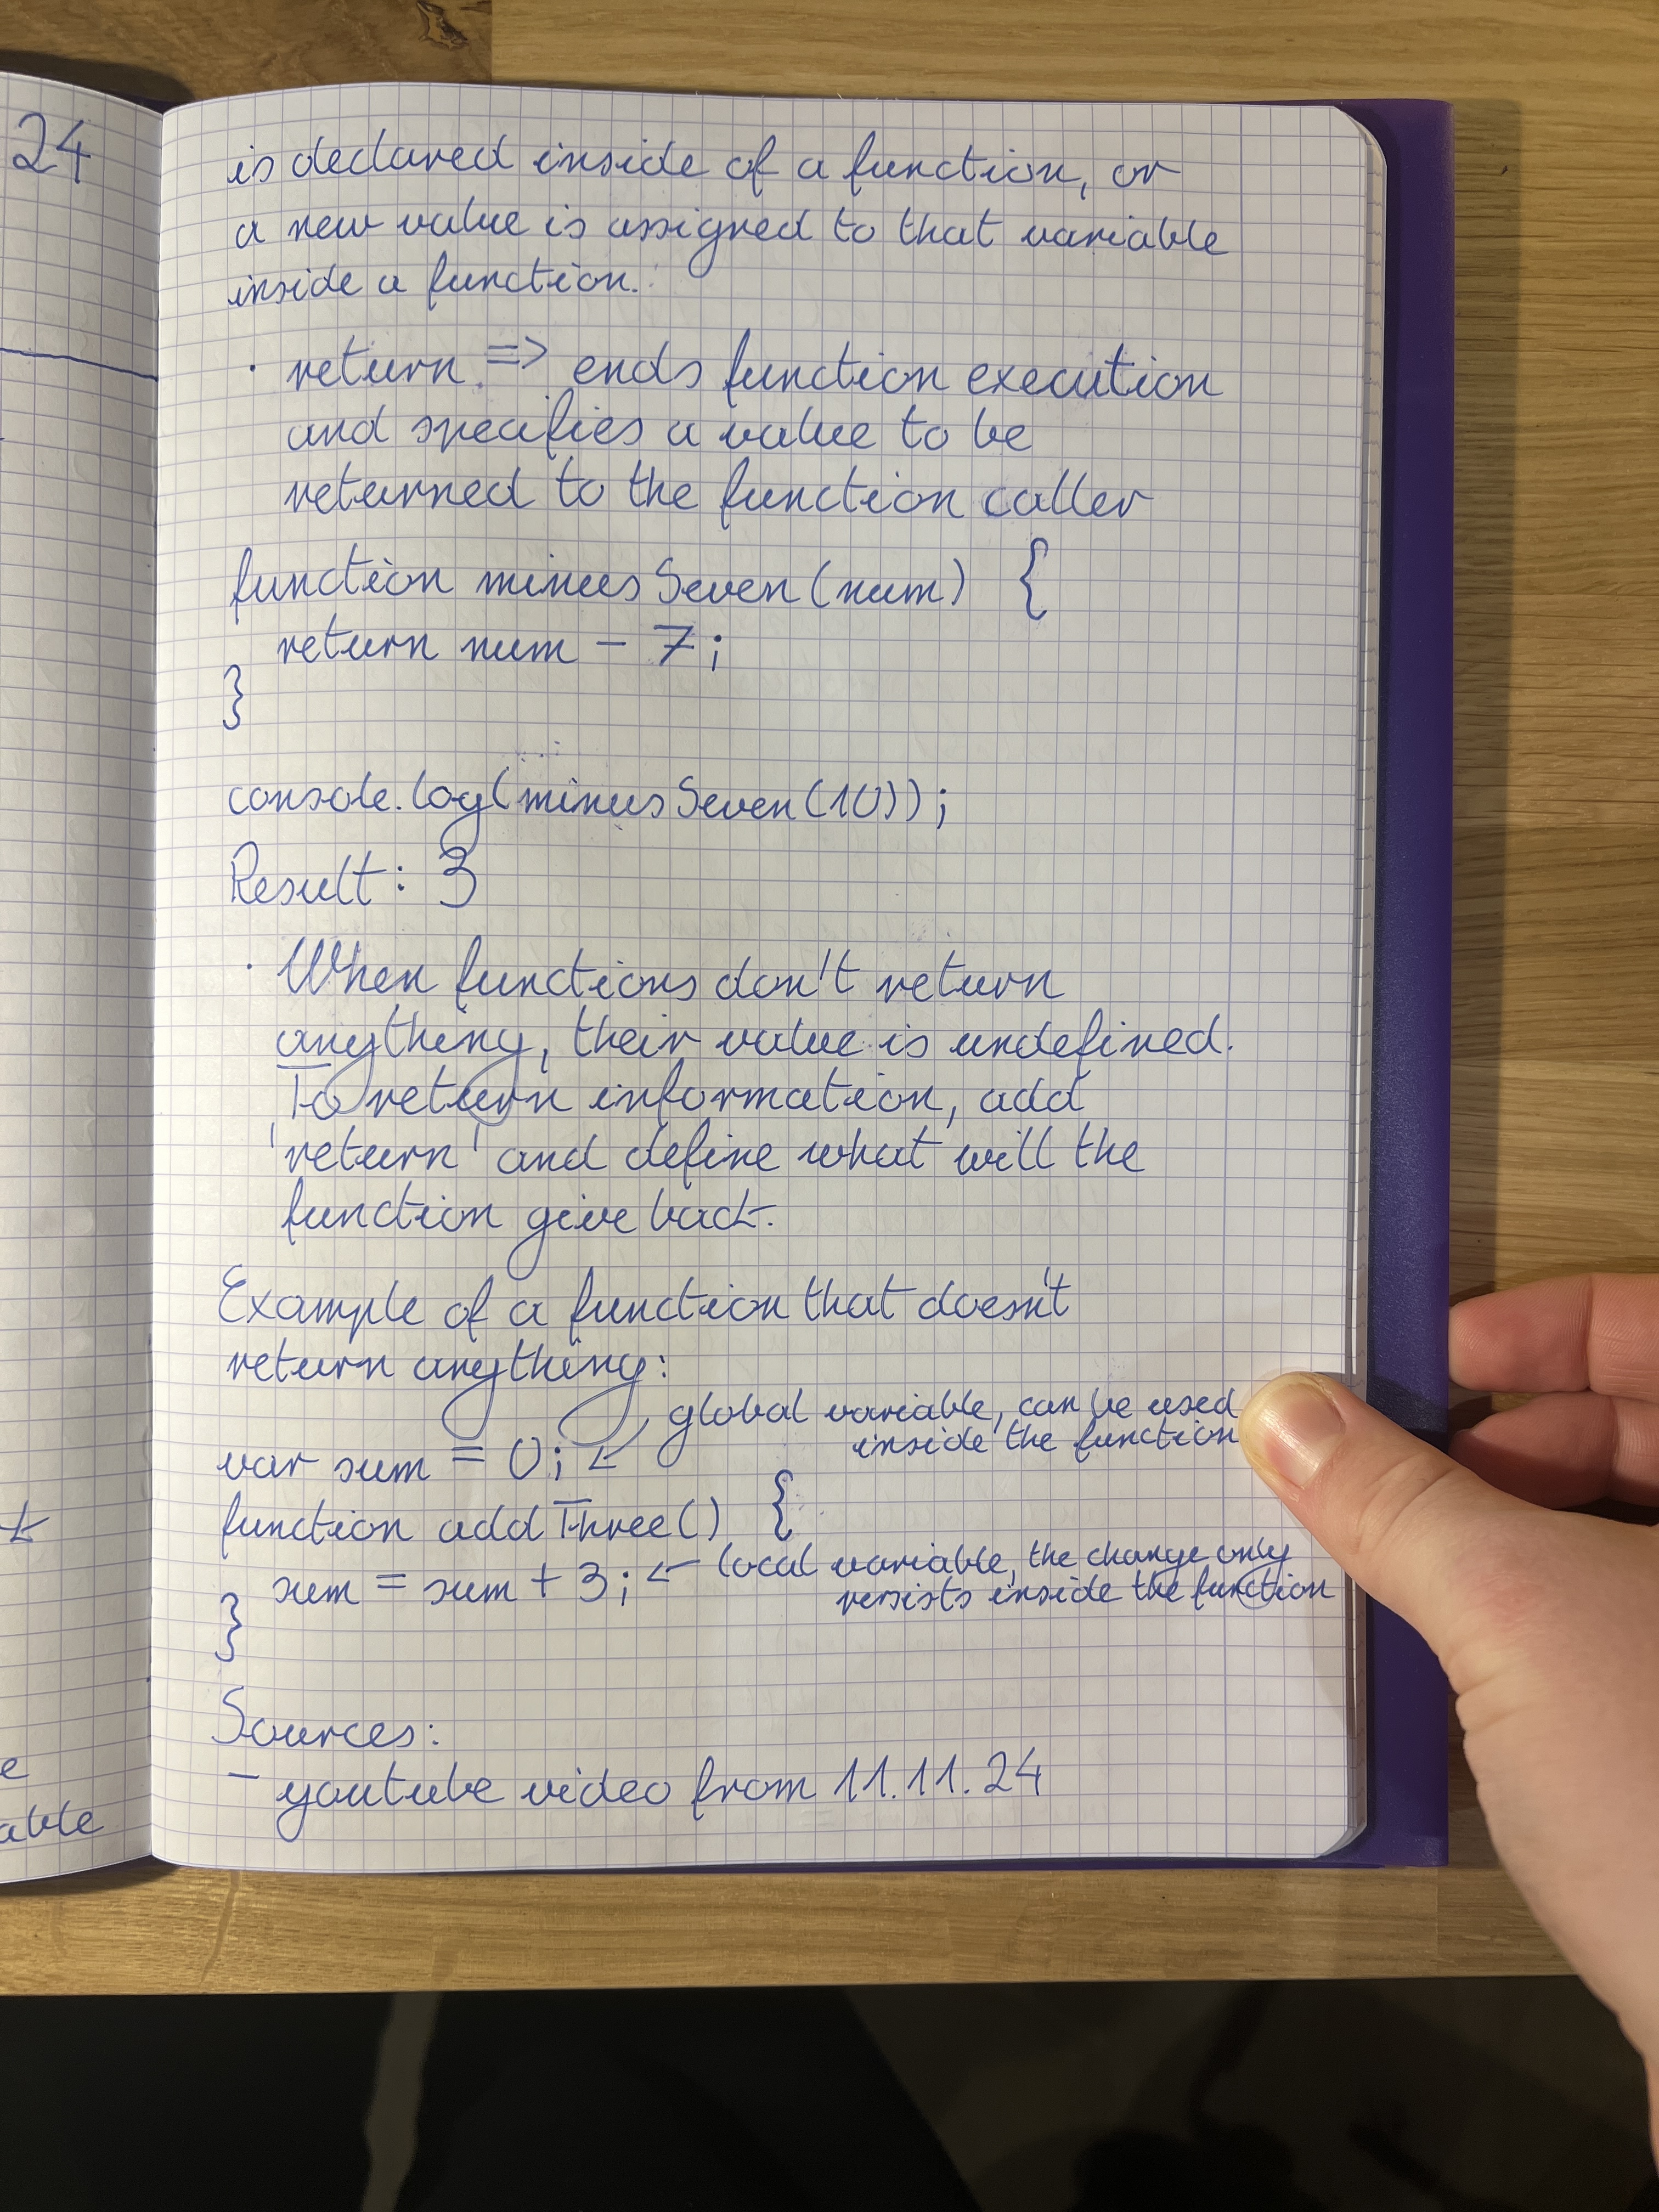 24
is declared inside of a function, or
a new value is assigned to that variable
inside a function.
· return => ends function execution
and specifies a value to be
returned to the function caller
function minusSeven(num) {
return num - 7;
}
console.log(minusSeven(10));
Result: 3
· When functions don't return
anything, their value is undefined.
To return information, add
'return' and define what will the
function give back.
Example of a function that doesn't
return anything:
global variable, can be used
inside the function
var sum = 0; ←
function addThree() {
sum = sum + 3; ← local variable, the change only
persists inside the function
}
Sources:
- youtube video from 11.11.24
e
able